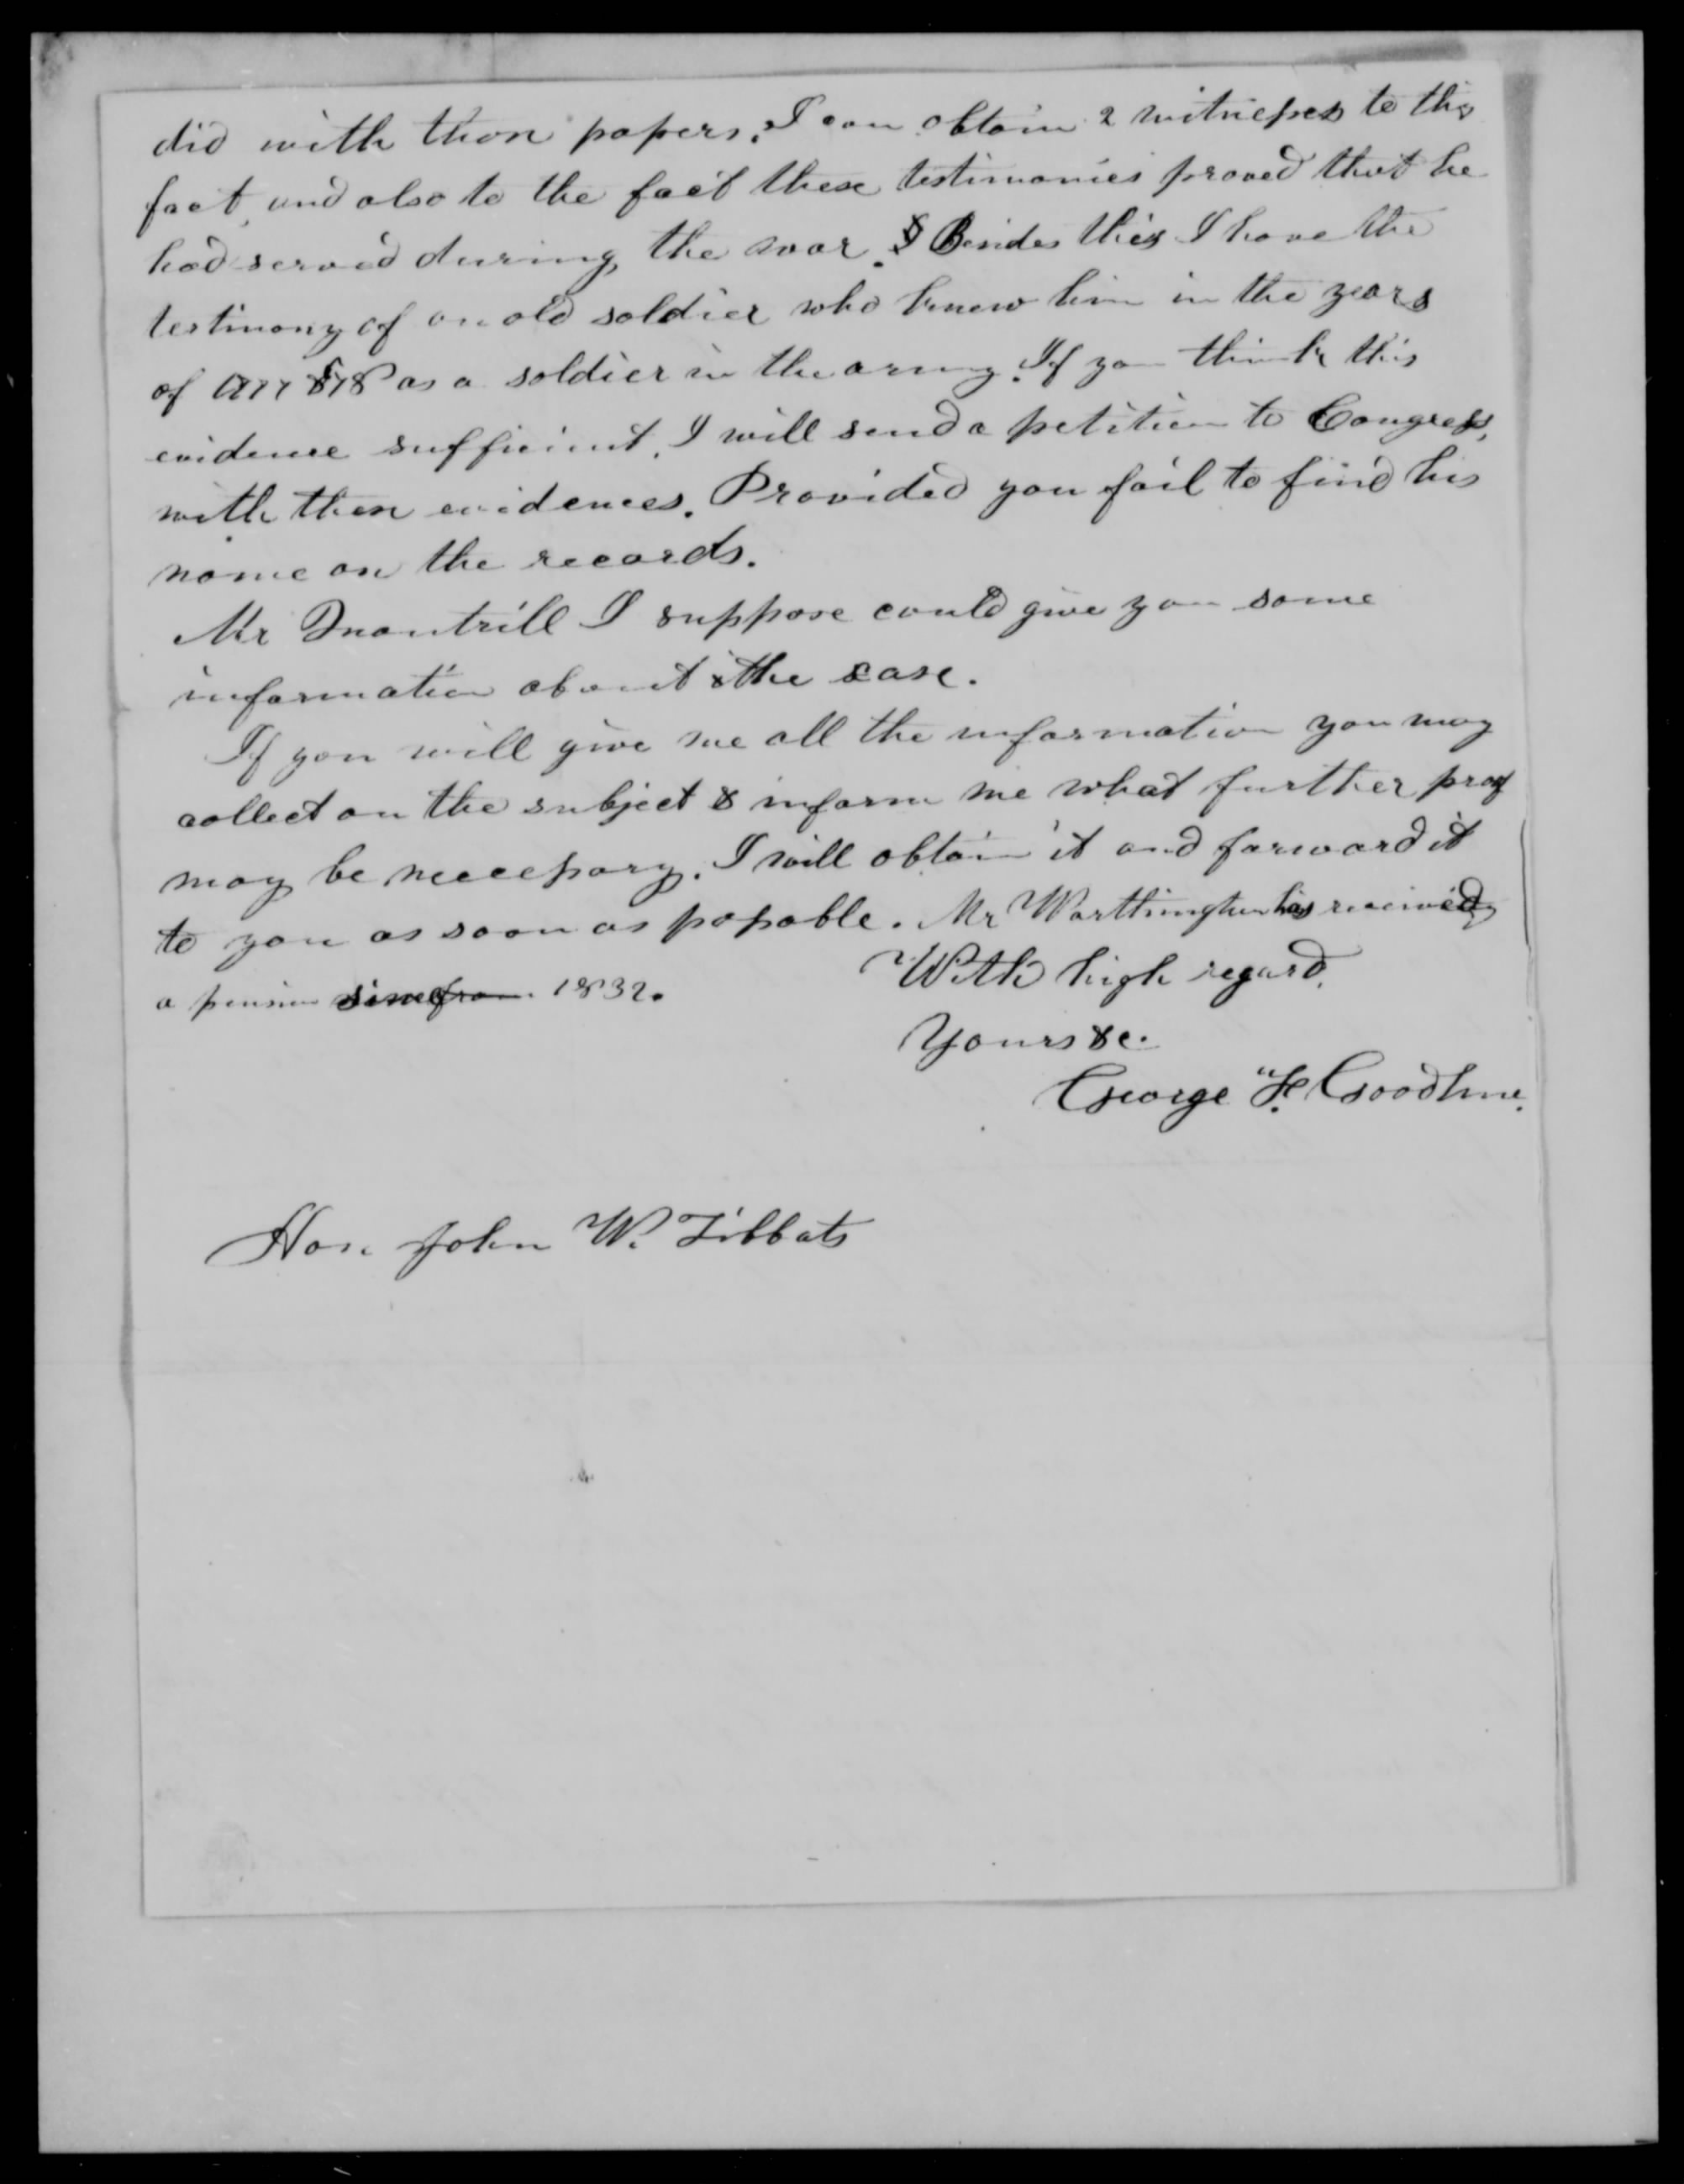 did with thos papers. I can obtain 2 witnesses to this
fact, and also to the fact these testimonies proved that he
had served during the war. & Besides this I have the
testimony of an old soldier who knew him in the years
of 1777 & 78 as a soldier in the army. If you think this
evidence sufficient, I will send a petition to Congress,
with these evidences. Provided you fail to find his
name on the records.
Mr I suppose could give you some
information about the case.
If you will give me all the information you may
collect on the subject & inform me what further proof
may be necessary. I will obtain it and forward it
to you as soon as possable. Mr Worthington has received
a pension since from 1832.
With high regard,
Yours &c.
George F. Goodhue.
Hon John W. Tibbats